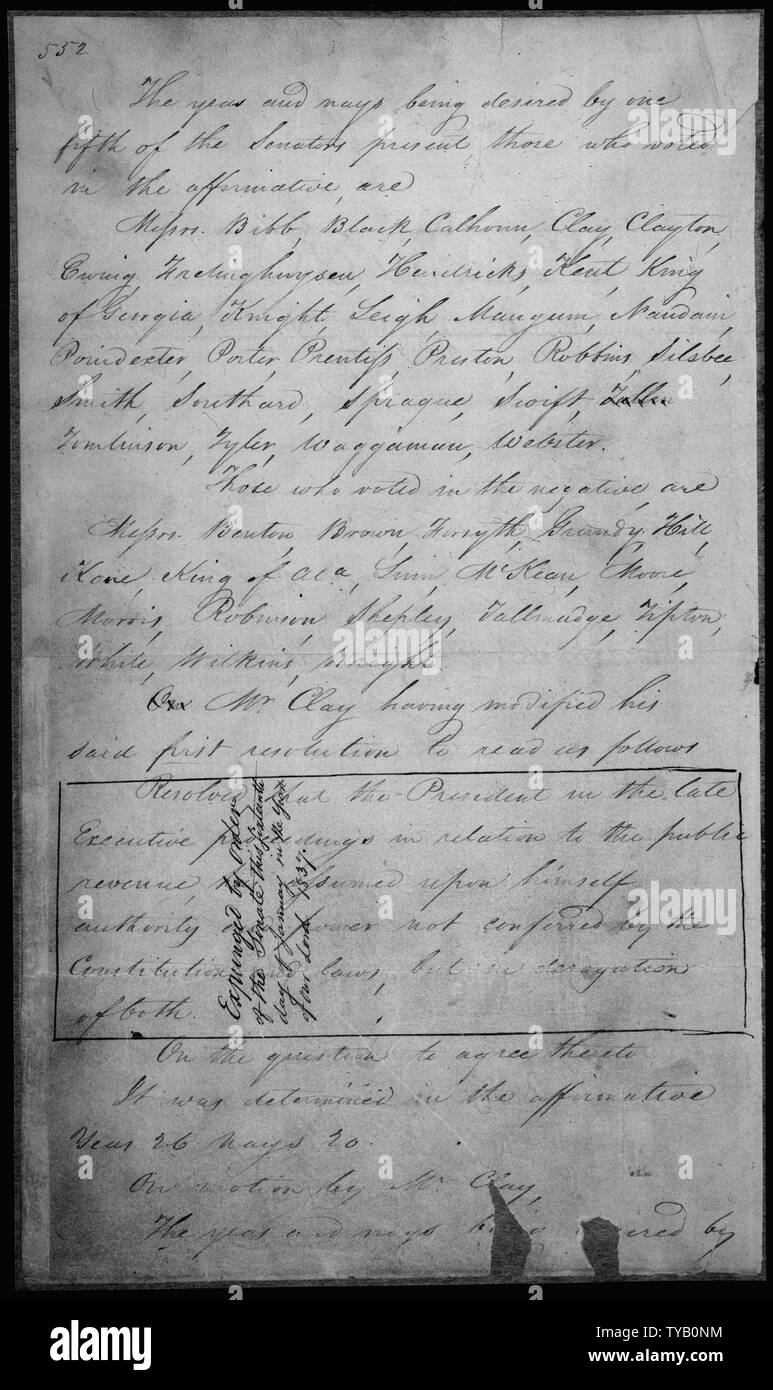 552
The yeas and nays being desired by one
fifth of the Senators present, those who voted
in the affirmative, are
Messrs. Bibb, Black, Calhoun, Clay, Clayton,
Ewing, Frelinghuysen, Hendricks, Kent, King
of Georgia, Knight, Leigh, Mangum, Naudain,
Poindexter, Porter, Prentiss, Preston, Robbins, Silsbee,
Smith, Southard, Sprague, Swift,
Tomlinson, Tyler, Waggaman, Webster.
Those who voted in the negative, are
Messrs. Benton, Brown, Forsyth, Grundy, Hill,
Kane, King of Ala, Linn, McKean, Moore,
Morris, Robinson, Shepley, Tallmadge, Tipton,
White, Wilkins, Wright.
On Mr. Clay having modified his
said first resolution to read as follows
Resolved that the President in the late
Executive proceedings in relation to the public
revenue, has assumed upon himself
authority and power not conferred by the
Constitution and laws, but in derogation
of both.
Expunged by order
of the Senate this sixteenth
day of January in the year
of our Lord 1837.
On the question to agree thereto
It was determined in the affirmative
Yeas 26 Nays 20.
On motion by Mr Clay,
The yeas and nays being desired by
alamy
Image ID: TYB0NM
www.alamy.com